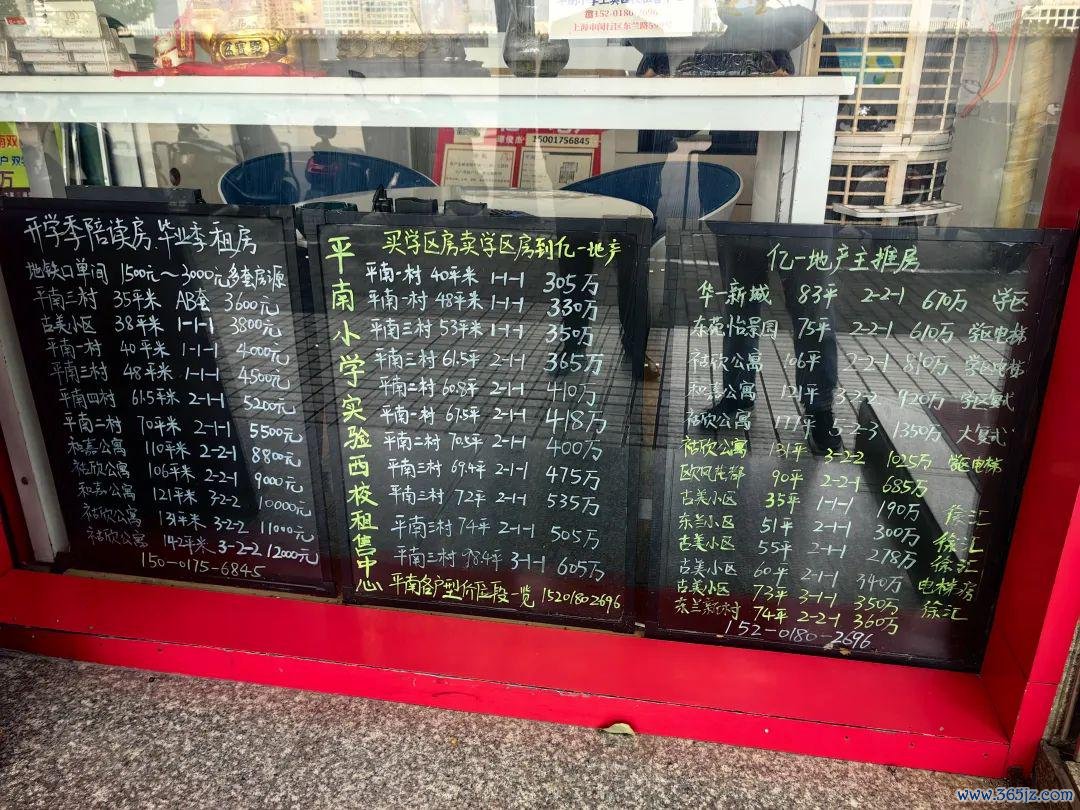 152-0186-2696
上海市闵行区东兰路
15001756845
开学季陪读房 毕业季租房
地铁口单间 1500元~3000元多套房源
平南三村 35平米 AB套 3600元
古美小区 38平米 1-1-1 3800元
平南一村 40平米 1-1-1 4000元
平南三村 48平米 1-1-1 4500元
平南四村 61.5平米 2-1-1 5200元
平南二村 70平米 2-1-1 5500元
和嘉公寓 110平米 2-2-1 8800元
祐欣公寓 106平米 2-2-1 9000元
和嘉公寓 121平米 3-2-2 10000元
祐欣公寓 131平米 3-2-2 11000元
祐欣公寓 142平米 3-2-2 12000元
150-0175-6845
平南小学实验西校租售中心
买学区房卖学区房到亿一地产
平南一村 40平米 1-1-1 305万
平南一村 48平米 1-1-1 330万
平南三村 53平米 1-1-1 350万
平南三村 61.5平 2-1-1 365万
平南二村 60.8平 2-1-1 410万
平南一村 67.5平 2-1-1 418万
平南二村 70.5平 2-1-1 400万
平南三村 69.4平 2-1-1 475万
平南三村 72平 2-1-1 535万
平南三村 74平 2-1-1 505万
平南三村 98.4平 3-1-1 605万
平南各户型价位段一览 15201802696
亿一地产主推房
华一新城 83平 2-2-1 670万 学区
东苑怡景园 75平 2-2-1 610万 学区电梯
祐欣公寓 106平 2-2-1 810万 学区电梯
和嘉公寓 121平 3-2-2 920万 学区复式
祐欣公寓 177平 5-2-3 1350万 大复式
祐欣公寓 131平 3-2-2 1025万 学区电梯
欧风花都 90平 2-2-1 685万
古美小区 35平 1-1-1 190万 徐汇
东兰小区 51平 2-1-1 300万
古美小区 55平 2-1-1 278万 徐汇
古美小区 60平 2-1-1 340万 徐汇
古美小区 73平 3-1-1 350万 电梯房
东兰新村 74平 2-2-1 360万 徐汇
152-0180-2696
www.365jz.com